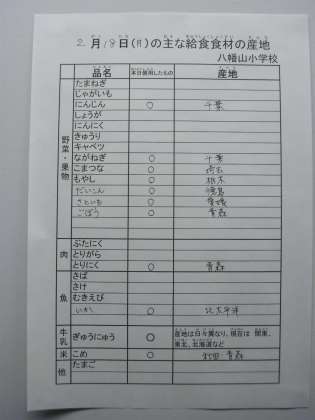 2月18日(月)の主な給食食材の産地
八幡山小学校
品名 本日使用したもの 産地
野菜・果物
たまねぎ
じゃがいも
にんじん ○ 千葉
しょうが
にんにく
きゅうり
キャベツ
ながねぎ ○ 千葉
こまつな ○ 埼玉
もやし ○ 栃木
だいこん ○ 徳島
さといも ○ 愛媛
ごぼう ○ 青森
肉
ぶたにく
とりがら
とりにく ○ 青森
魚
さば
さけ
むきえび
いか ○ 北太平洋
牛乳 ぎゅうにゅう ○ 産地は日々異なり、現在は 関東、
東北、北海道など
米 こめ ○ 秋田 青森
他 たまご